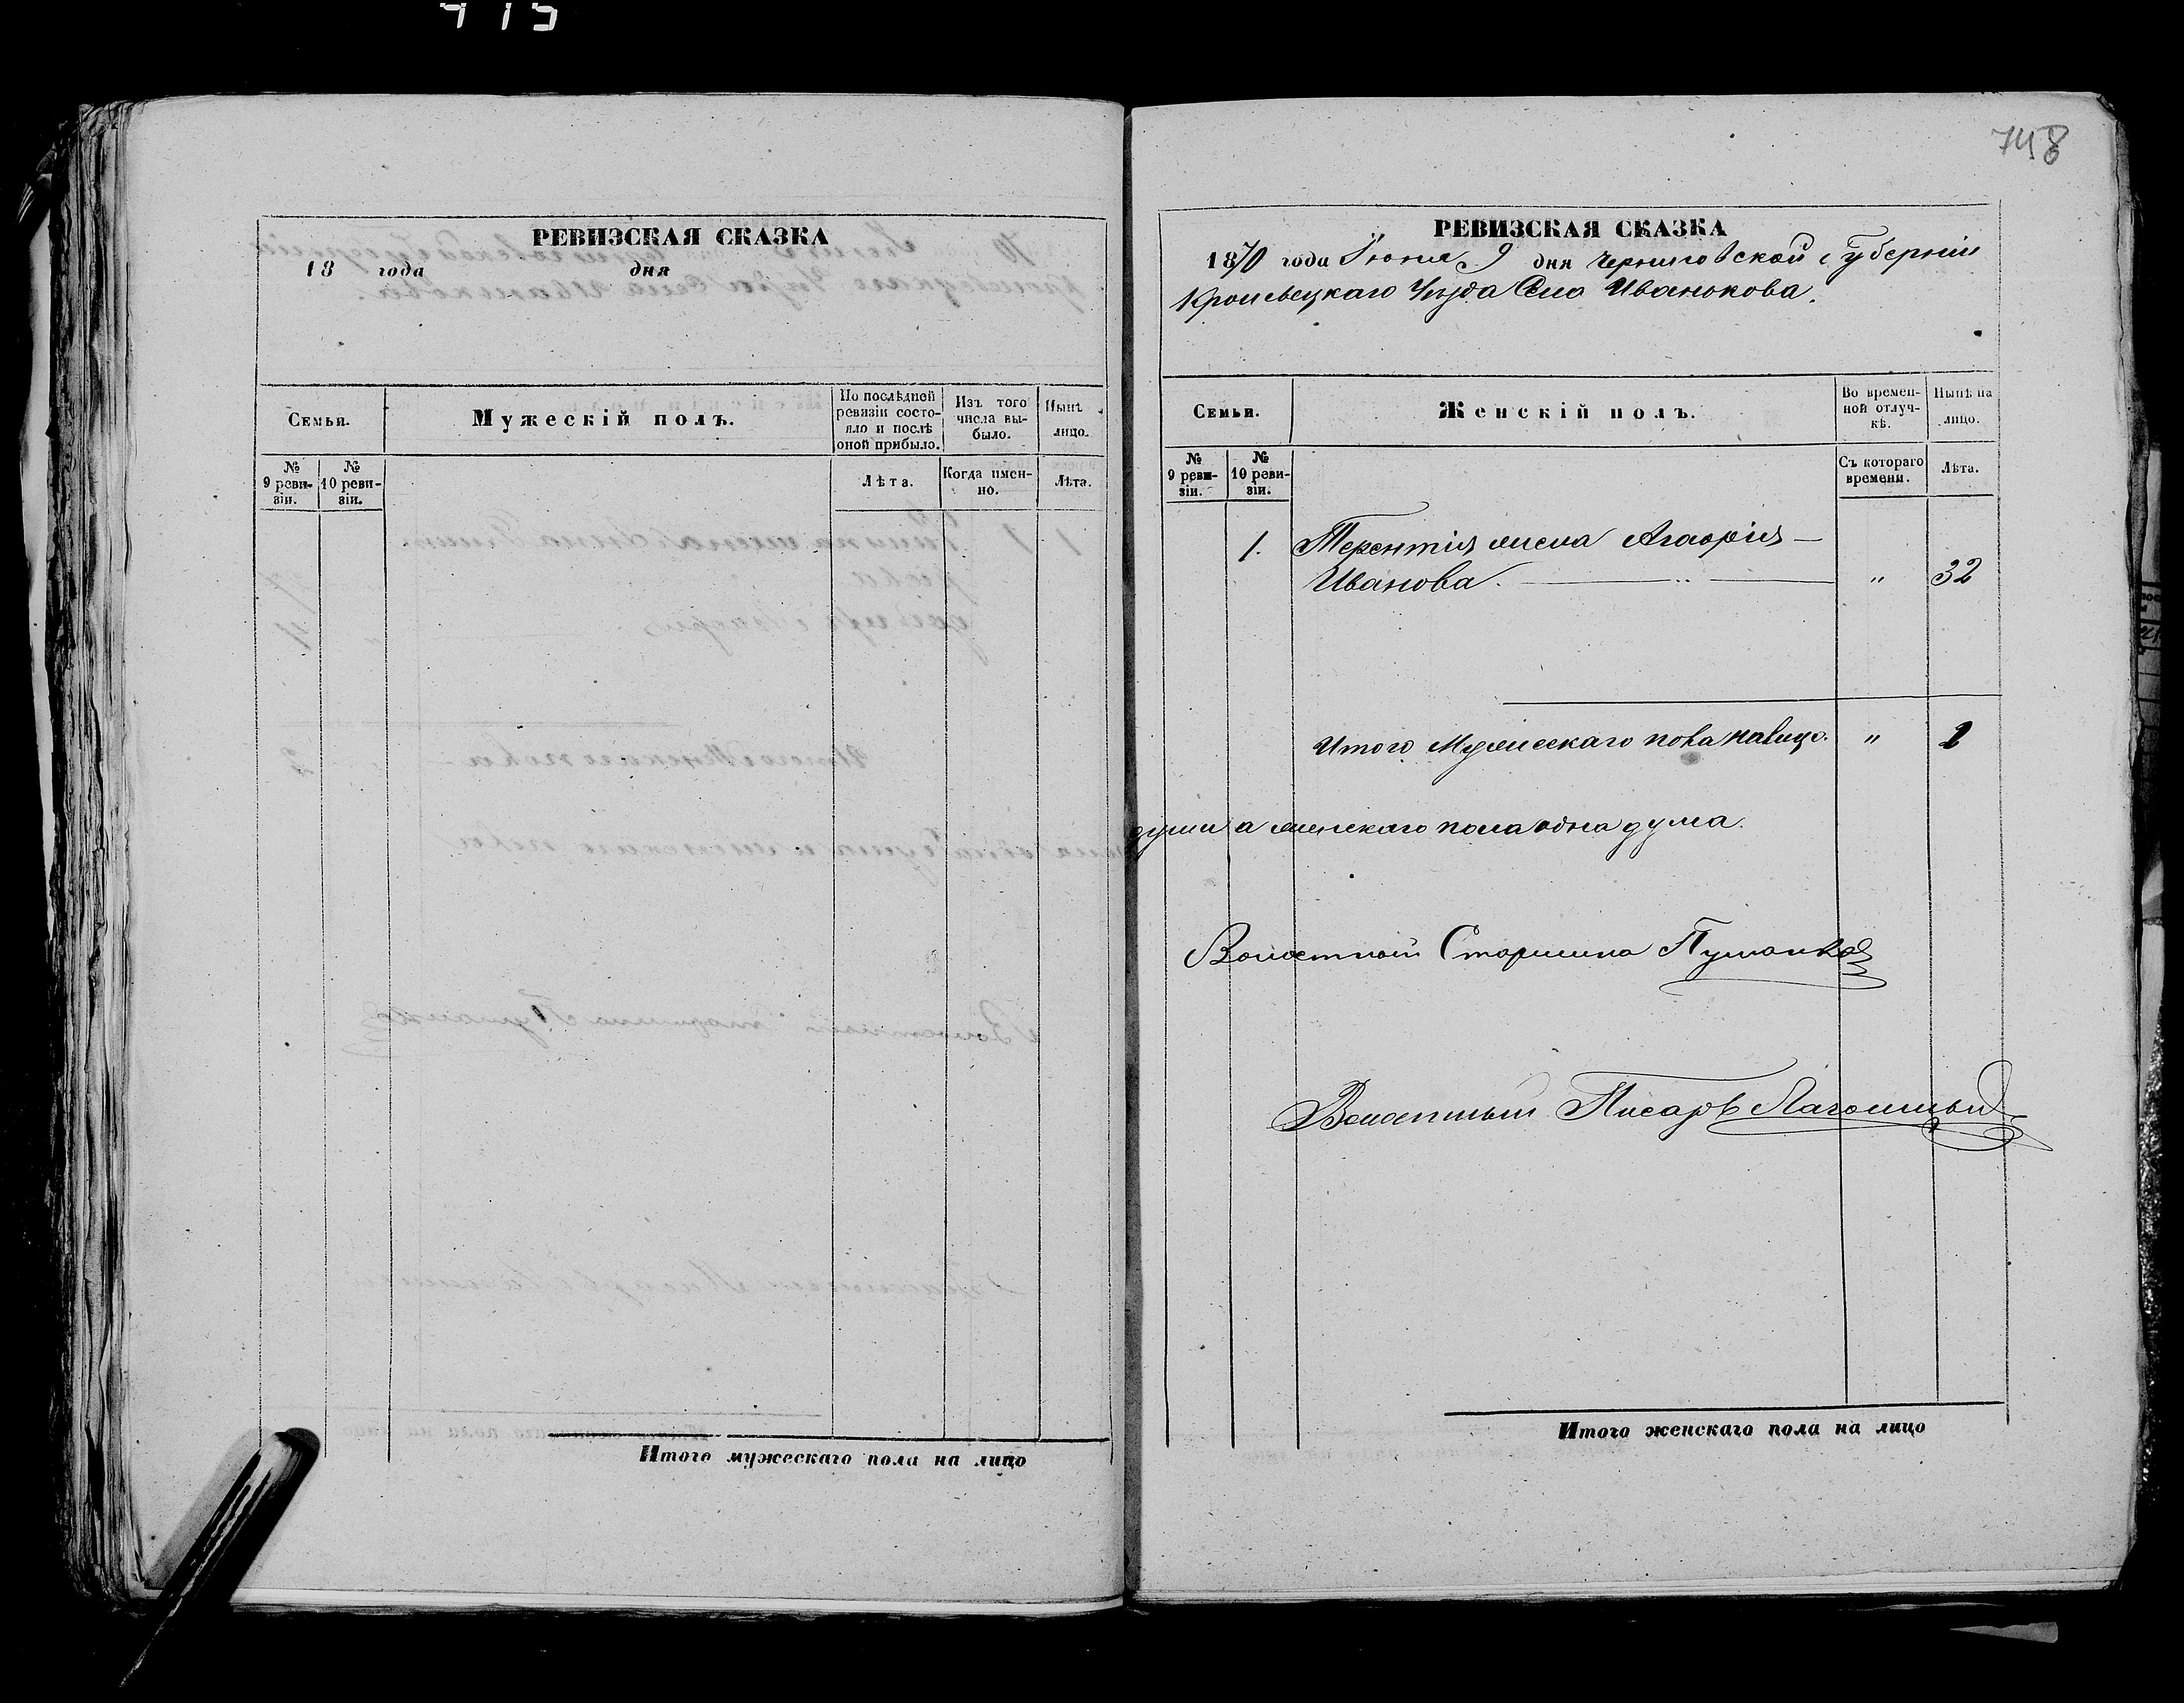 415
РЕВИЗСКАЯ СКАЗКА
18 года дня
Семьи.
Мужескій полъ.
По послѣдней ревизіи состояло и послѣ оной прибыло.
Изъ того числа выбыло.
Нынѣ лицо.
№ 9 ревизіи.
№ 10 ревизіи.
Лѣта.
Когда именно.
Лѣта.
Итого мужескаго пола на лицо
748
РЕВИЗСКАЯ СКАЗКА
1870 года Іюня 9 дня Черниговской Губерніи
Кролевецкаго Уѣзда Села Иванькова.
Семьи.
Женскій полъ.
Во временной отлучкѣ.
Нынѣ на лицо.
№ 9 ревизіи.
№ 10 ревизіи.
Съ котораго времени.
Лѣта.
1. Терентія жена Агафія —
Иванова. — " 32
Итого Мужескаго пола налицо. " 1
души а женскаго пола одна душа.
Волостной Старшина
Волостный Писарь
Итого женскаго пола на лицо